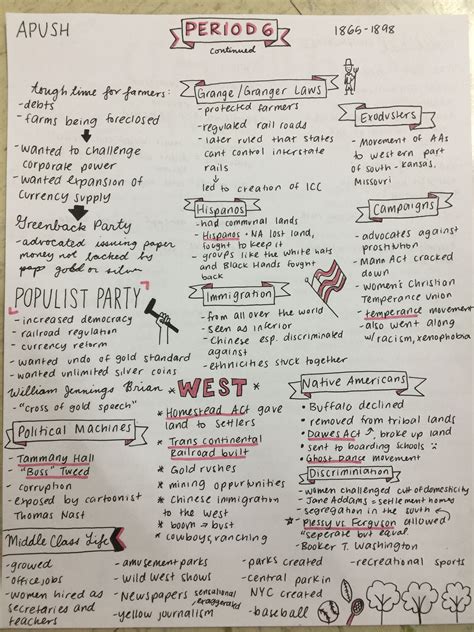 APUSH
PERIOD 6
continued
1865-1898
tough time for farmers:
- debts
- farms being foreclosed
- wanted to challenge
corporate power
- wanted expansion of
currency supply
Greenback Party
- advocated issuing paper
money not backed by
gold or silver
POPULIST PARTY
- increased democracy
- railroad regulation
- currency reform
- wanted undo of gold standard
- wanted unlimited silver coins
William Jennings Brian
- "cross of gold speech"
Political Machines
- Tammany Hall
"Boss" Tweed
- corruption
- exposed by cartoonist
Thomas Nast
Grange/Granger Laws
- protected farmers
- regulated rail roads
- later ruled that states
cant control interstate
rails
led to creation of ICC
Hispanos
- had communal lands
- Hispanos + NA lost land,
fought to keep it
- groups like the white hats
and Black Hands fought
back
Immigration
- from all over the world
- seen as inferior
- Chinese esp. discriminated
against
- ethnicities stuck together
* WEST *
* Homestead Act gave
land to settlers
* Trans continental
Railroad built
* Gold rushes
* mining opportunities
* Chinese immigration
to the west
* boom → bust
* cowboys, ranching
Exodusters
- Movement of AAs
to western part
of south - Kansas,
Missouri
Campaigns
- advocates against
prostitution
- Mann Act cracked
down
- women's Christian
Temperance union
- temperance movement
- also went along
w/ racism, xenophobia
Native Americans
• Buffalo declined
• removed from tribal lands
• Dawes Act, broke up land
• sent to boarding schools
• Ghost Dance movement
Discrimination
- women challenged cult of domesticity
- Jane Addams = settlement homes
- segregation in the south
- Plessy vs Ferguson allowed
"seperate but equal"
- Booker T. Washington
Middle Class Life
- growed
- office jobs
- women hired as
secretaries and
teachers
- amusement parks
- wild west shows
- Newspapers sensational, exaggerated
- yellow journalism
- parks created
- central park in
NYC created
- baseball
- recreational sports